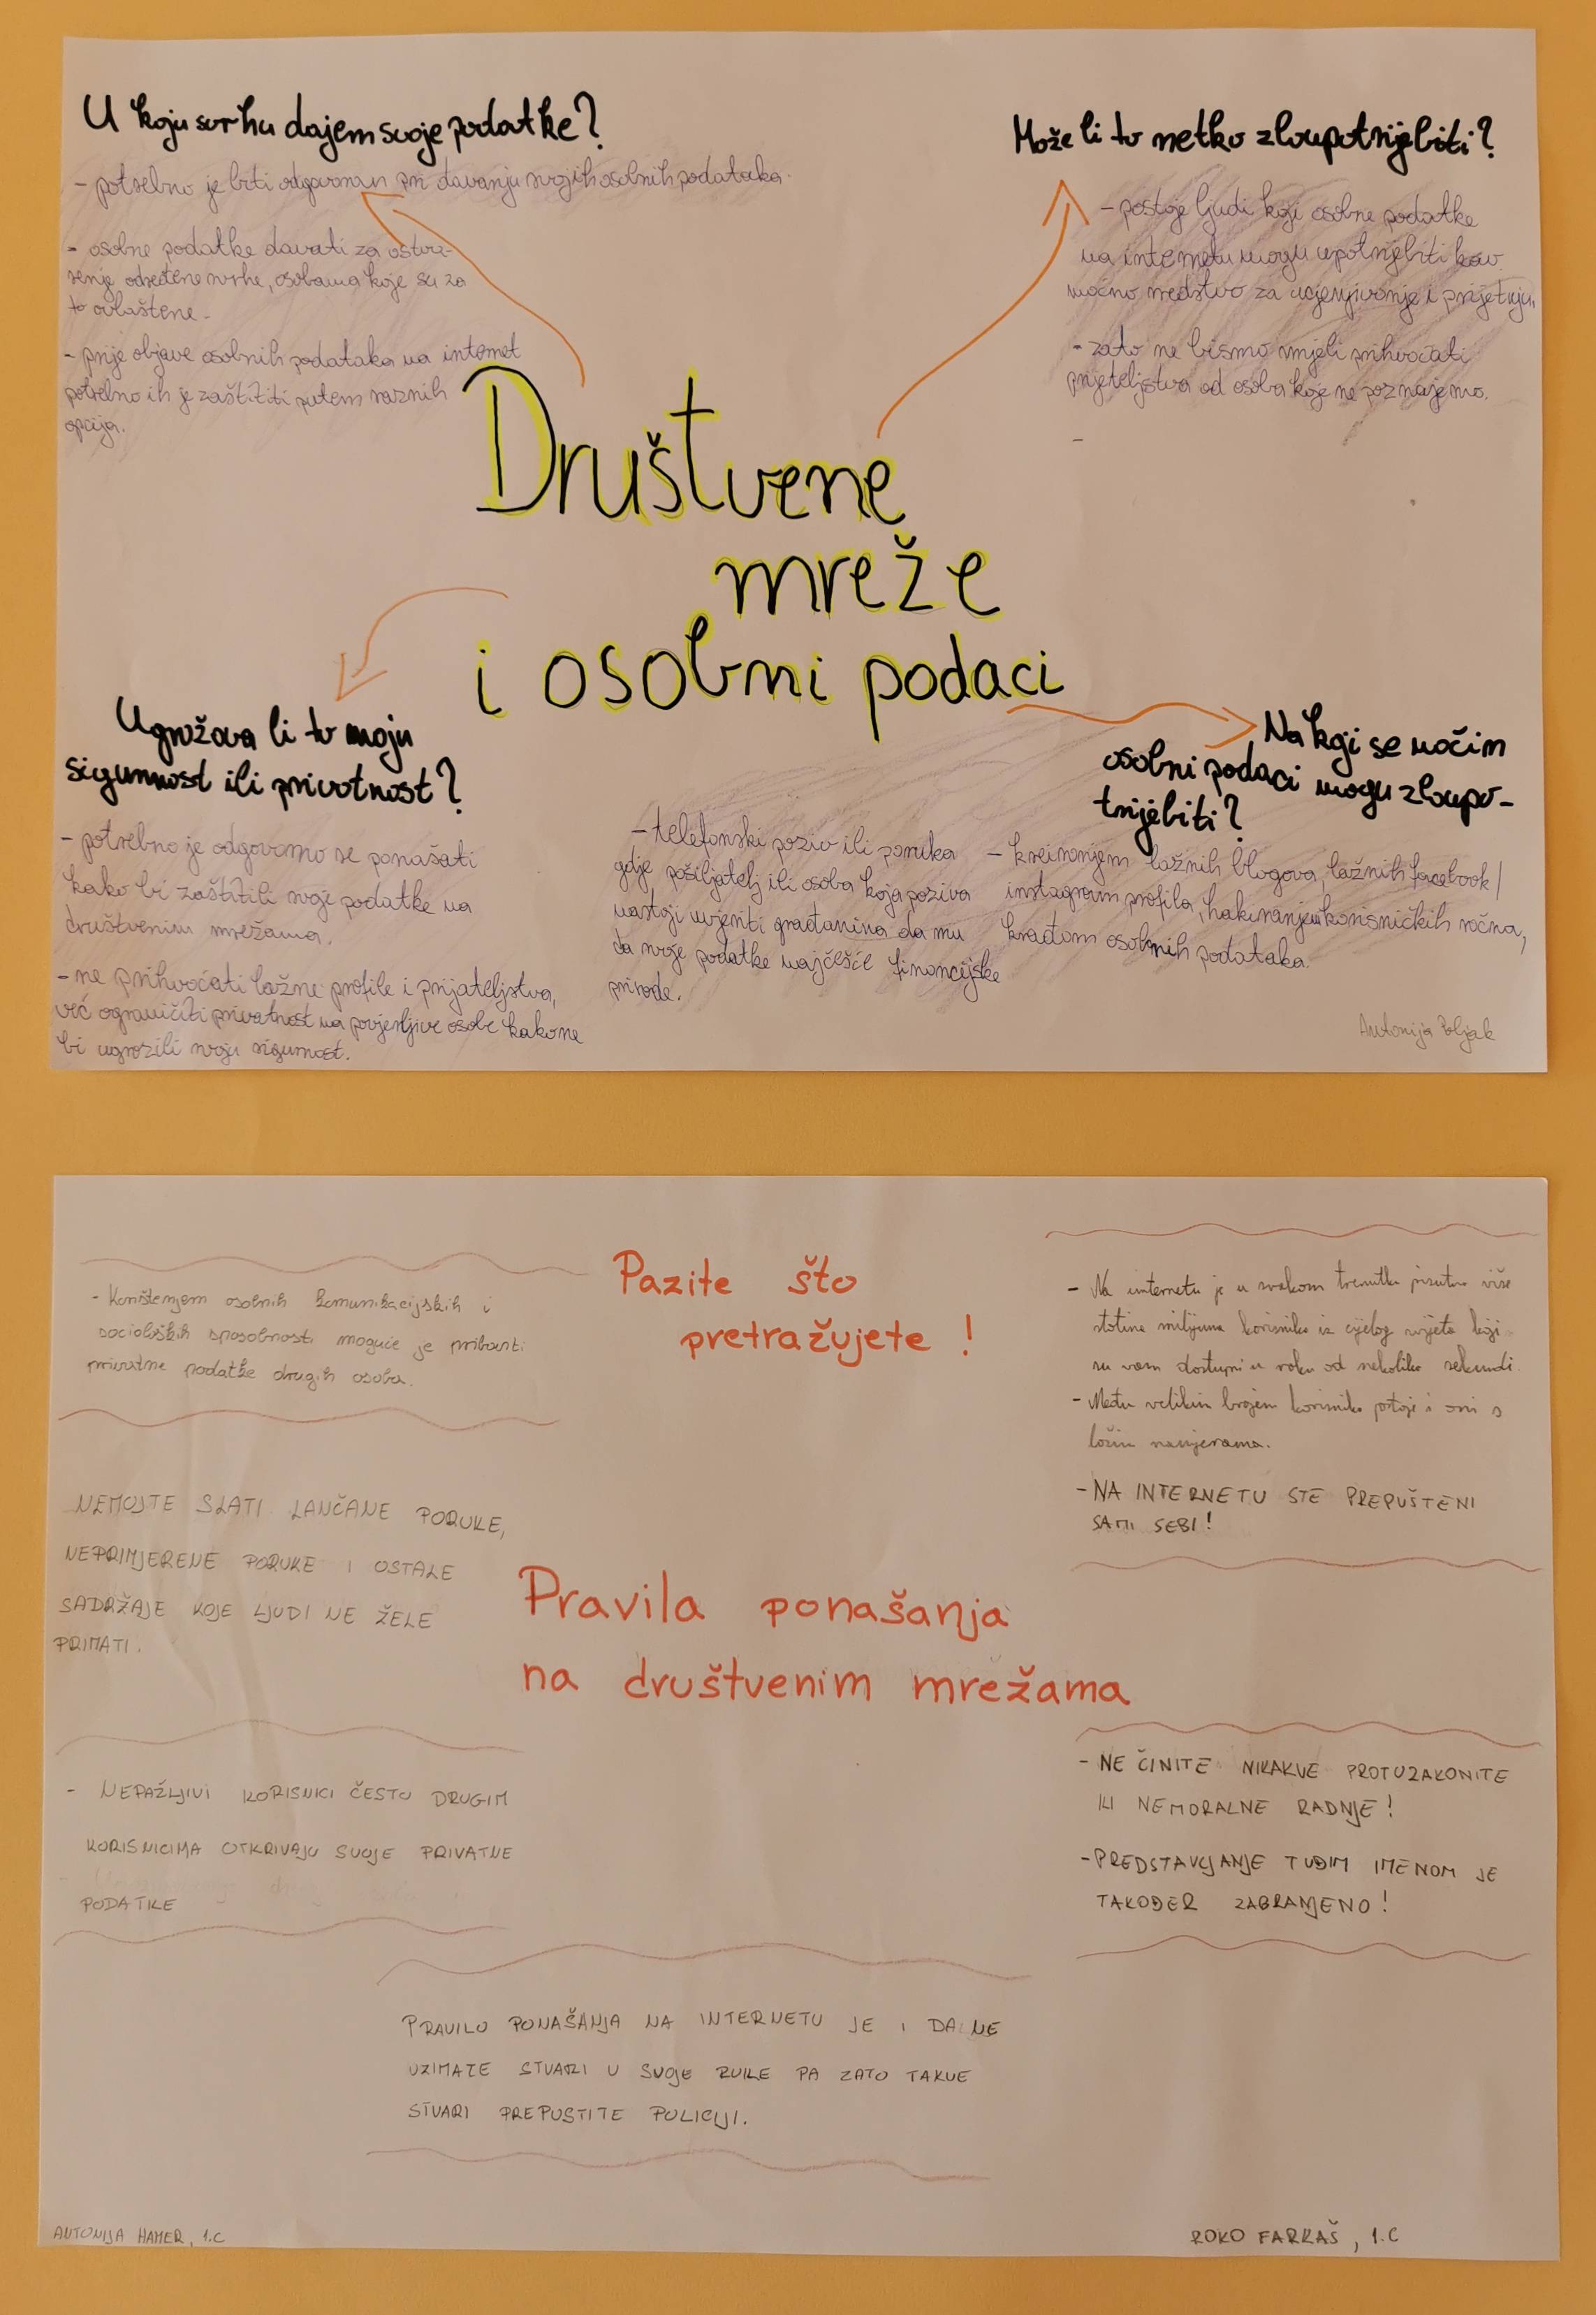 U koju svrhu dajem svoje podatke?
- potrebno je biti odgovoran pri davanju svojih osobnih podataka.
- osobne podatke davati za ostva-
renje određene svrhe, osobama koje su za
to ovlaštene.
- prije objave osobnih podataka na internet
potrebno ih je zaštititi putem raznih
opcija.
Može li to netko zloupotrijebiti?
- postoje ljudi koji osobne podatke
na internetu mogu upotrijebiti kao
moćno sredstvo za ucjenjivanje i prijetnju.
- zato ne bismo smjeli prihvaćati
prijateljstva od osoba koje ne poznajemo.
-
Društvene
mreže
i osobni podaci
Ugrožava li to moju
sigurnost ili privatnost?
- potrebno je odgovorno se ponašati
kako bi zaštitili svoje podatke na
društvenim mrežama.
- ne prihvaćati lažne profile i prijateljstva,
već ograničiti privatnost na povjerljive osobe kako ne
bi ugrozili svoju sigurnost.
Na koji se način
osobni podaci mogu zloupo-
trijebiti?
- telefonski poziv ili poruka
gdje pošiljatelj ili osoba koja poziva
nastoji uvjeriti građanina da mu
da svoje podatke najčešće financijske
prirode.
- kreiranjem lažnih blogova, lažnih facebook/
instagram profila, hakiranjem korisničkih računa,
krađom osobnih podataka.
Antonija Poljak
Pazite što
pretražujete !
- Korištenjem osobnih komunikacijskih i
socioloških sposobnosti moguće je pribaviti
privatne podatke drugih osoba.
- Na internetu je u svakom trenutku prisutno više
stotina milijuna korisnika iz cijelog svijeta koji
su vam dostupni u roku od nekoliko sekundi.
- Među velikim brojem korisnika postoje i oni s
lošim namjerama.
- NA INTERNETU STE PREPUŠTENI
SAMI SEBI!
NEMOJTE SLATI LANČANE PORUKE,
NEPRIMJERENE PORUKE I OSTALE
SADRŽAJE KOJE LJUDI NE ŽELE
PRIMATI.
Pravila ponašanja
na društvenim mrežama
- NEPAŽLJIVI KORISNICI ČESTO DRUGIM
KORISNICIMA OTKRIVAJU SVOJE PRIVATNE
PODATKE
- NE ČINITE NIKAKVE PROTUZAKONITE
ILI NEMORALNE RADNJE!
- PREDSTAVLJANJE TUĐIM IMENOM JE
TAKOĐER ZABRANJENO!
PRAVILO PONAŠANJA NA INTERNETU JE I DA NE
UZIMATE STVARI U SVOJE RUKE PA ZATO TAKVE
STVARI PREPUSTITE POLICIJI.
ANTONIJA HAMER, 1.C
ROKO FARKAŠ, 1.C